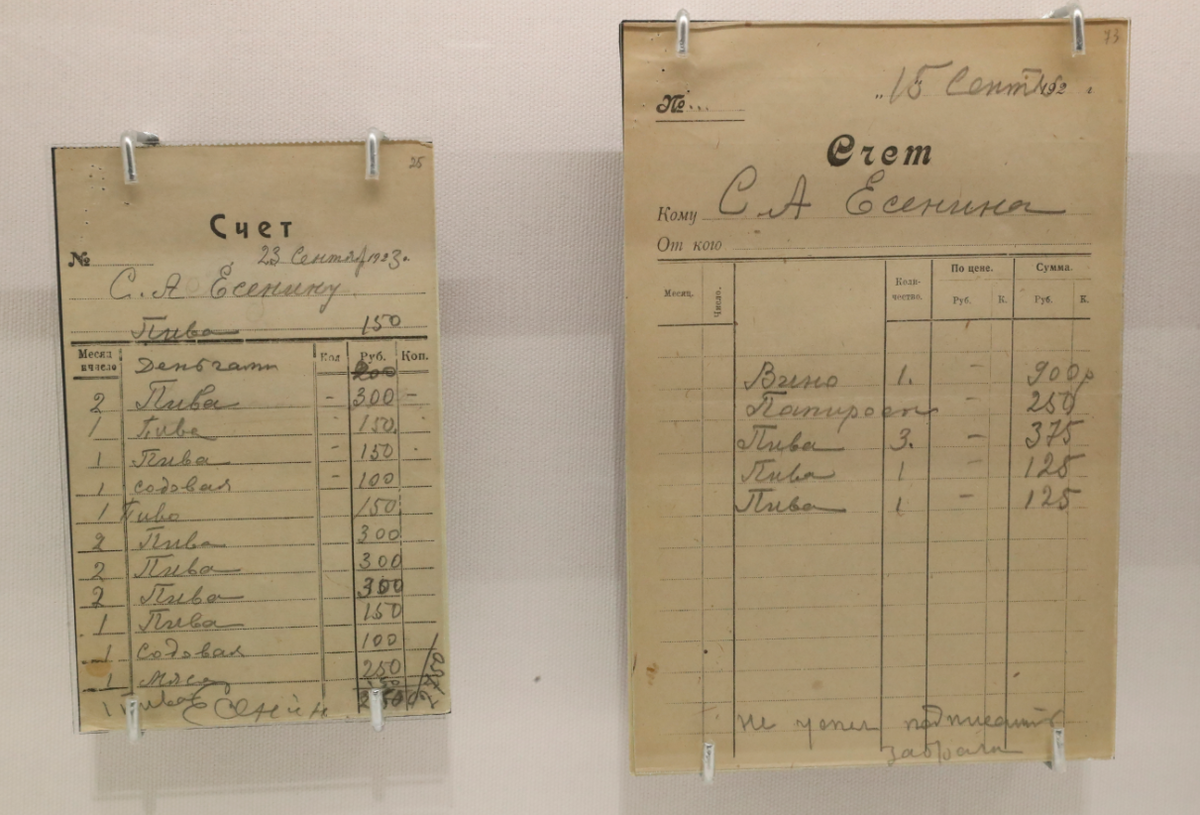 25
Счет
№ 23 Сентяб 1923г.
С. А Есенину
Пива 150
Месяц и число Кол Руб. Коп.
Деньгами 200
2 Пива - 300 -
1 Пива 150.
1 Пива - 150
1 содовая - 100
1 Пиво 150
2 Пива 300
2 Пива 300
2 Пива 300
1 Пива 150
1 содовая 100
1 Мясо 250
1 Пиво
Есенин
73
№... „15 Сентяб 192 г.
Счет
Кому С. А Есенина
От кого
Месяц. Число. Коли-чество. По цене. Руб. К. Сумма. Руб. К.
Вино 1. - 900р
Папиросы - 250
Пива 3. - 375
Пива 1 - 125
Пива 1 - 125
не успел подписать
забрали